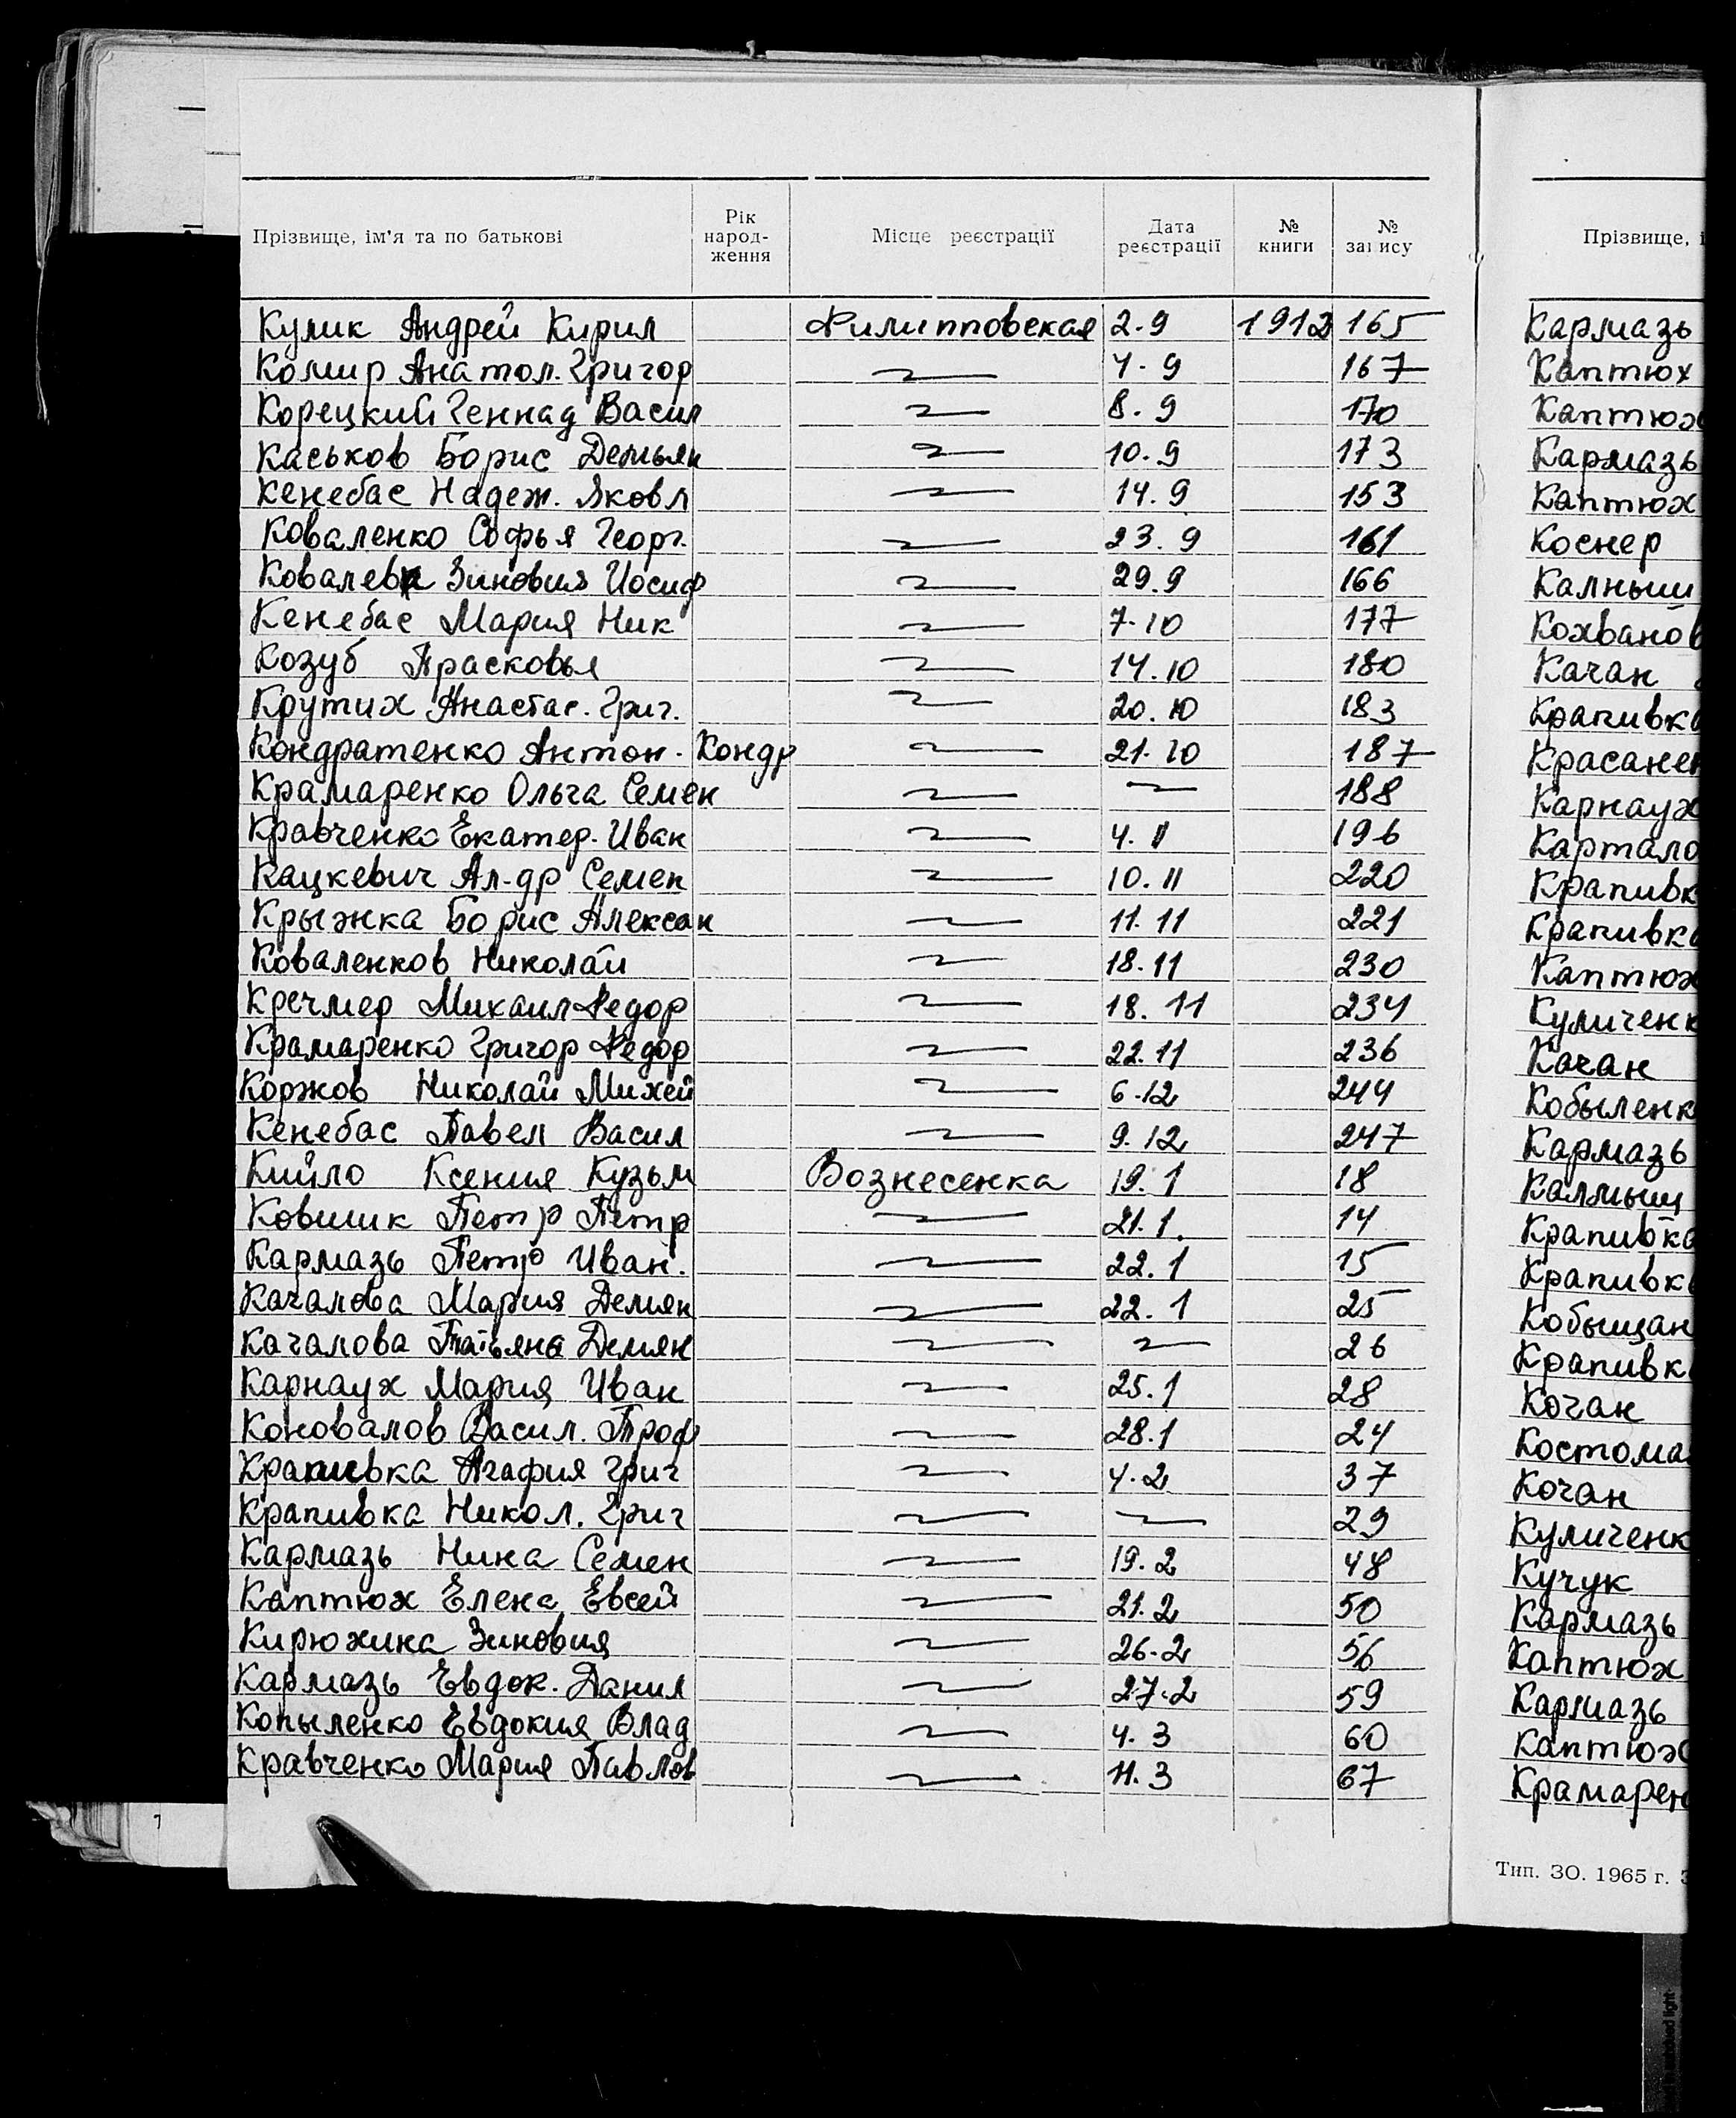 Прізвище, ім'я та по батькові Рік народ-ження Місце реєстрації Дата реєстрації № книги № запису
Кулик Андрей Кирил Филипповская 2.9 1912 165
Комир Анатол. Григор 4.9 167
Корецкий Геннад Васил 8.9 170
Каськов Борис Демьян 10.9 173
Кенебас Надеж. Яковл 14.9 153
Коваленко Софья Георг. 23.9 161
Ковалева Зиновия Иосиф 29.9 166
Кенебас Мария Ник 7.10 177
Козуб Прасковья 14.10 180
Крутих Анастас. Григ. 20.10 183
Кондратенко Антон. Кондр 21.10 187
Крамаренко Ольга Семен 188
Кравченко Екатер. Иван 4.11 196
Кацкевич Ал-др Семен 10.11 220
Крыжка Борис Алексан 11.11 221
Коваленков Николай 18.11 230
Кречмер Михаил Федор 18.11 234
Крамаренко Григор Федор 22.11 236
Коржов Николай Михей 6.12 244
Кенебас Павел Васил 9.12 247
Кийло Ксения Кузьм Вознесенка 19.1 18
Ковшик Петр Петр 21.1. 14
Кармазь Петр Иван. 22.1 15
Качалова Мария Демян 22.1 25
Качалова Татьяна Демян 26
Карнаух Мария Иван 25.1 28
Коновалов Васил. Троф 28.1 24
Крапивка Агафия Григ 4.2 37
Крапивка Никол. Григ 29
Кармазь Нина Семен 19.2 48
Каптюх Елена Евсей 21.2 50
Кирюхина Зиновия 26.2 56
Кармазь Евдок. Данил 27.2 59
Копыленко Евдокия Влад 4.3 60
Кравченко Мария Павлов 11.3 67
Прізвище, і
Кармазь
Каптюх
Каптюх
Кармазь
Каптюх
Коснер
Калныш
Кохванов
Качан
Крапивка
Красанен
Карнаух
Картало
Крапивк
Крапивка
Каптюх
Куличенк
Качан
Кобыленк
Кармазь
Калмыщ
Крапивка
Крапивк
Кобыщан
Крапивк
Кочан
Костома
Кочан
Куличенк
Кучук
Кармазь
Каптюх
Кармазь
Каптюх
Крамарен
Тип. ЗО. 1965 г.